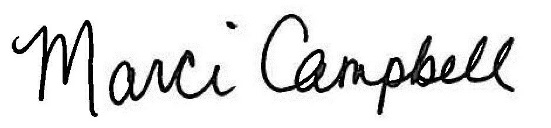 Marci Campbell